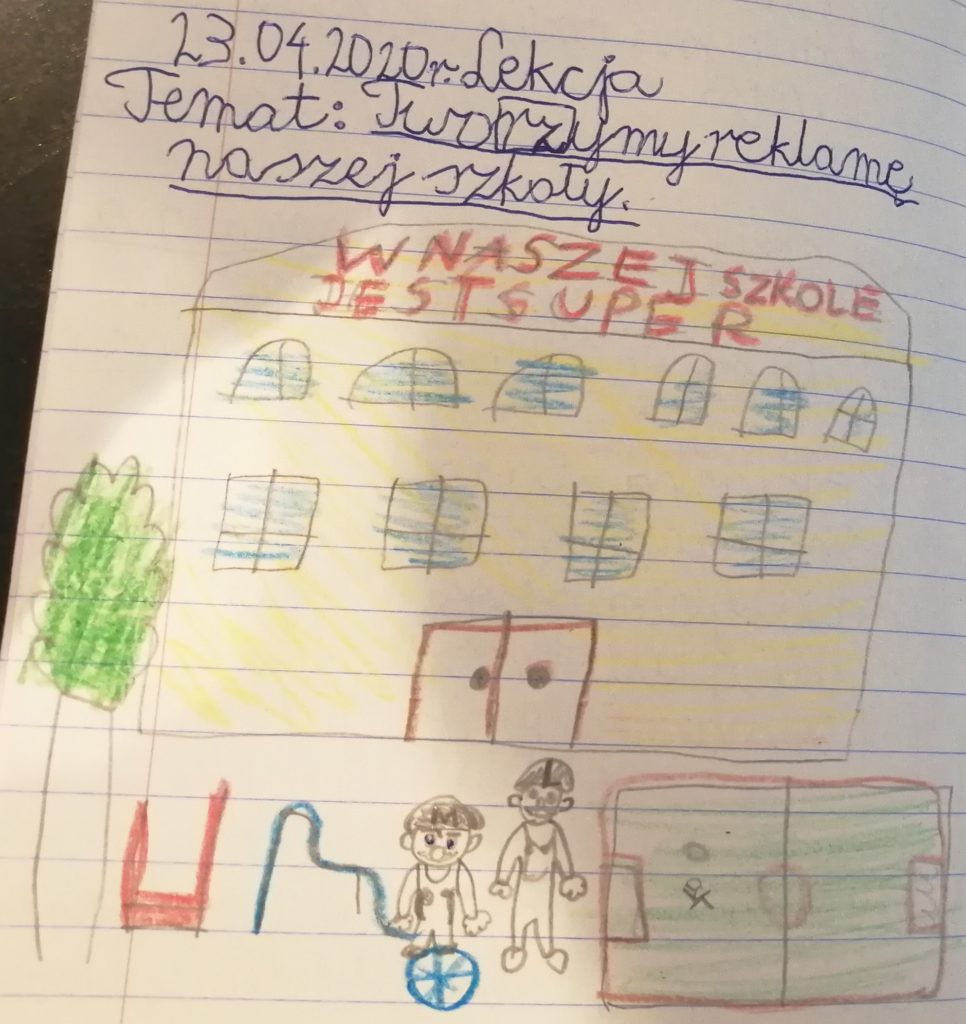 23.04.2020r. Lekcja
Temat: Tworzymy reklamę
naszej szkoły.
W NASZEJ SZKOLE
JEST SUPER
M
L